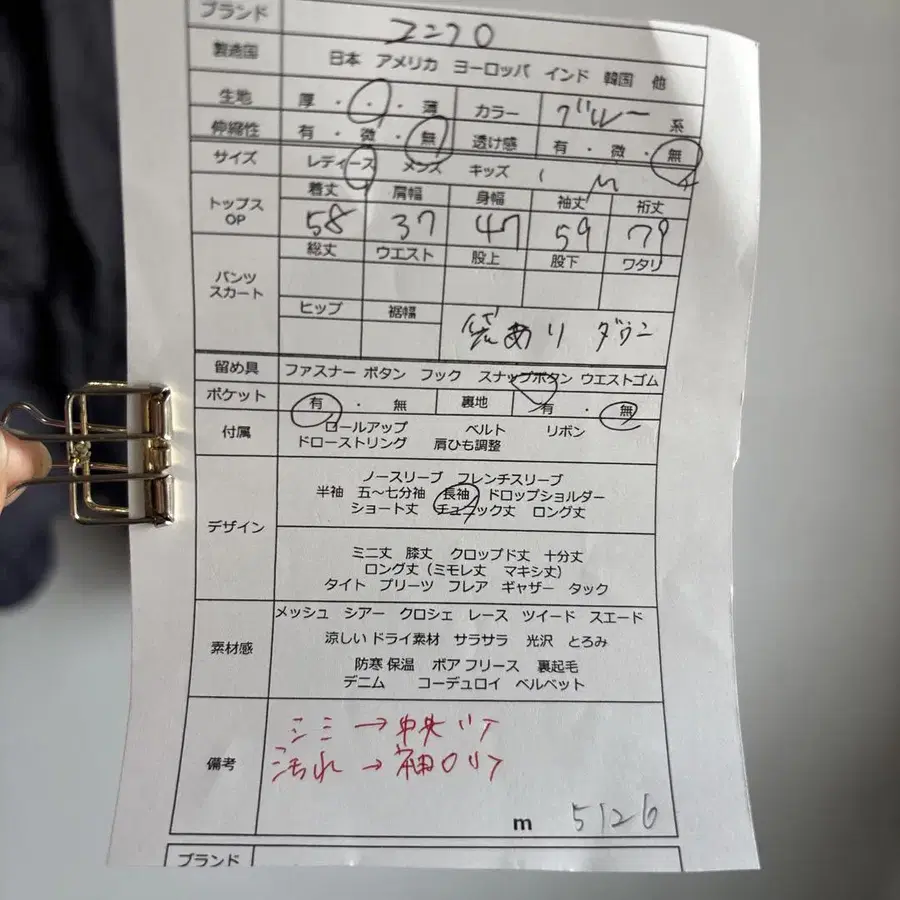 ブランド ユニクロ
製造国 日本 アメリカ ヨーロッパ インド 韓国 他
生地 厚 ・ ・ ・ 薄 カラー ブルー 系
伸縮性 有 ・ 微 ・ 無 透け感 有 ・ 微 ・ 無
サイズ レディース メンズ キッズ ( M
トップス OP 着丈 肩幅 身幅 袖丈 裄丈
58 37 47 59 79
パンツ スカート 総丈 ウエスト 股上 股下 ワタリ
ヒップ 裾幅
袋あり ダウン
留め具 ファスナー ボタン フック スナップボタン ウエストゴム
ポケット 有 ・ 無 裏地 有 ・ 無
付属 ロールアップ ベルト リボン
ドローストリング 肩ひも調整
デザイン
ノースリーブ フレンチスリーブ
半袖 五〜七分袖 長袖 ドロップショルダー
ショート丈 チュニック丈 ロング丈
ミニ丈 膝丈 クロップド丈 十分丈
ロング丈(ミモレ丈 マキシ丈)
タイト プリーツ フレア ギャザー タック
素材感
メッシュ シアー クロシェ レース ツイード スエード
涼しい ドライ素材 サラサラ 光沢 とろみ
防寒 保温 ボア フリース 裏起毛
デニム コーデュロイ ベルベット
備考
シミ → 中央リア
汚れ → 袖口リア
m 5126
ブランド